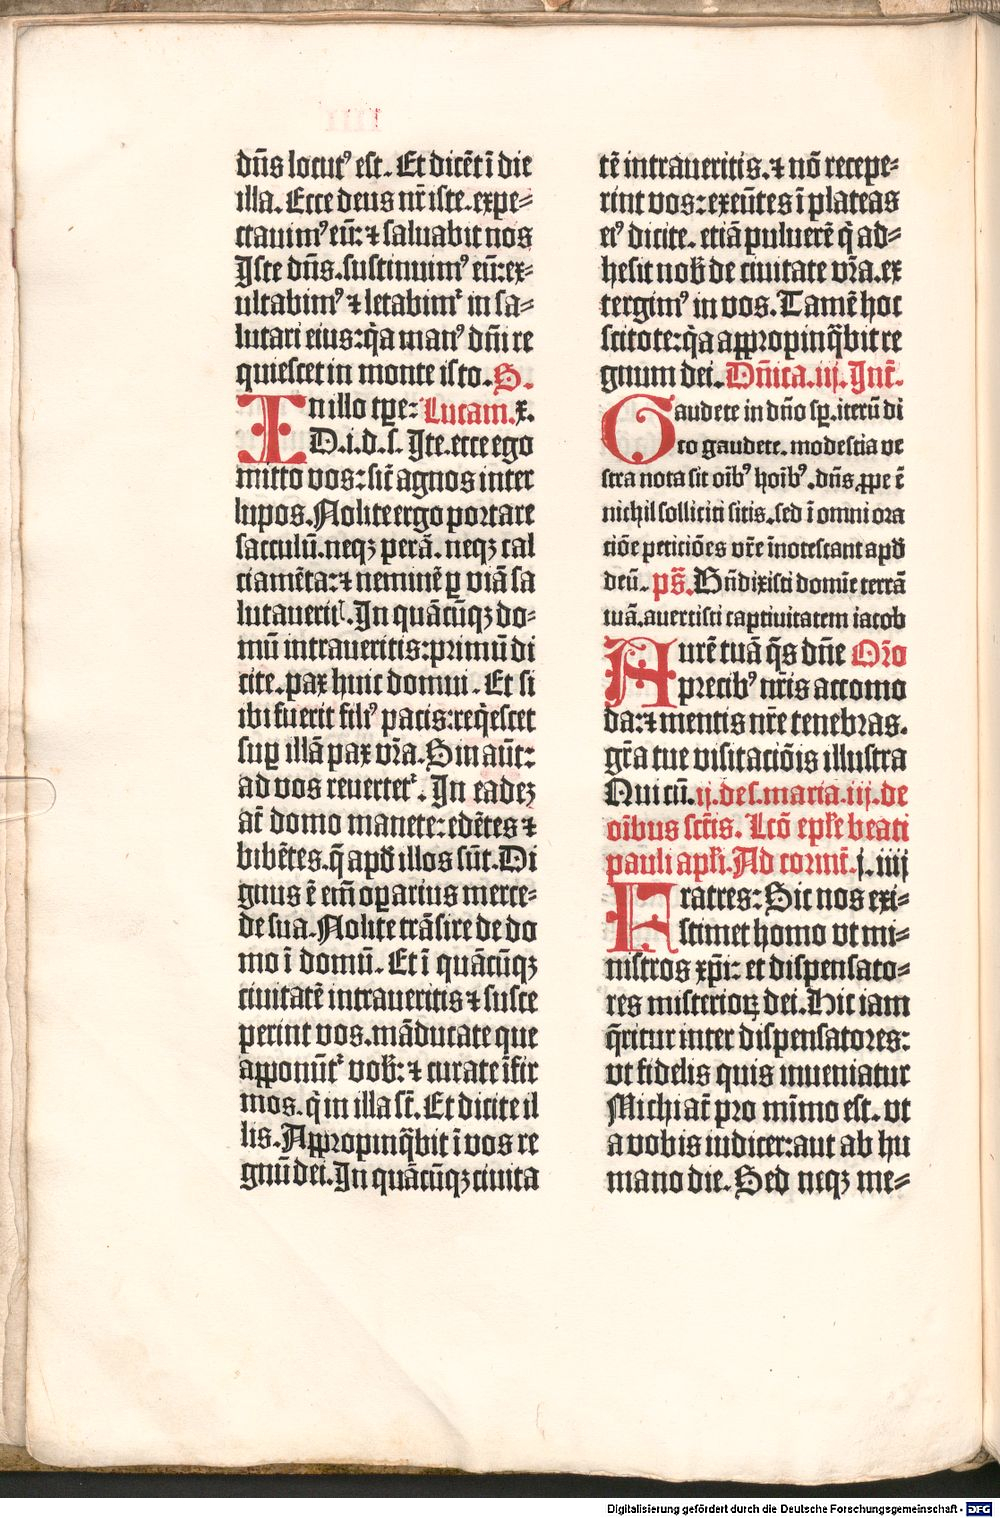 dn̄s locut⁹ est. Et dicēt ī die
illa. Ecce deus nr̄ iste. expe⸗
ctauim⁹ eū: ⁊ saluabit nos
Iste dn̄s. sustinuim⁹ eū: ex⸗
ultabim⁹ ⁊ letabimᷣ in sa⸗
lutari eius: q̄a man⁹ dn̄i re
quiescet in monte isto. S.
In illo tp̄e: Lucam. x.
D. i. d. s. Ite. ecce ego
mitto vos: sit̄ agnos inter
lupos. Nolite ergo portare
sacculū. neqꝫ perā. neqꝫ cal
ciamēta: ⁊ neminē ꝑ viā sa
lutaueritꝭ. In quācūqꝫ do⸗
mū intraueritis: primū di
cite. pax huic domui. Et si
ibi fuerit fili⁹ pacis: req̄escet
suꝑ illā pax vr̄a. Sin aūt:
ad vos reuertetᷣ. In eadeꝫ
at̄ domo manete: edētes ⁊
bibētes. q̄ apd̄ illos sūt. Di
gnus ē em̄ oꝑarius merce⸗
de sua. Nolite trāsire de do
mo ī domū. Et ī quācūqꝫ
ciuitatē intraueritis ⁊ susce
perint vos. māducate que
apponūtᷣ vob̄: ⁊ curate īfir
mos. q̄ in illa st̄. Et dicite il
lis. Appropinq̄bit ī vos re
gnū dei. In quācūqꝫ ciuita
tē intraueritis. ⁊ nō recepe⸗
rint vos: exeūtes ī plateas
ei⁹ dicite. etiā puluerē q̄ ad⸗
hesit nob̄ de ciuitate vr̄a. ex
tergim⁹ in vos. Tamē hoc
scitote: q̄a appropinq̄bit re
gnum dei. Dn̄ica. iij. Int̄.
Gaudete in dn̄o sꝑ. iterū di
co gaudete. modestia ve
stra nota sit oīb⁹ hoīb⁹. dn̄s ꝓpe ē
nichil solliciti sitis. sed ī omni ora
ciōe peticiōes vr̄e īnotescant apd̄
deū. ps̄. Bn̄dixisti domīe terrā
tuā. auertisti captiuitatem iacob
Aurē tuā q̄s dn̄e Or̄o
precib⁹ nr̄is accomo
da: ⁊ mentis nr̄e tenebras.
gr̄a tue visitaciōis illustra
Qui cū. ij. de s. maria. iij. de
oībus sct̄is. Lcō epl̄e beati
pauli apl̄i. Ad corint̄. j. iiij
Fratres: Sic nos exi⸗
stimet homo vt mi⸗
nistros xp̄i: et dispensato⸗
res misterioꝝ dei. Hic iam
q̄ritur inter dispensatores:
vt fidelis quis inueniatur
Michi at̄ pro mīmo est. vt
a vobis iudicer: aut ab hu
mano die. Sed neqꝫ me⸗
Digitalisierung gefördert durch die Deutsche Forschungsgemeinschaft - DFG